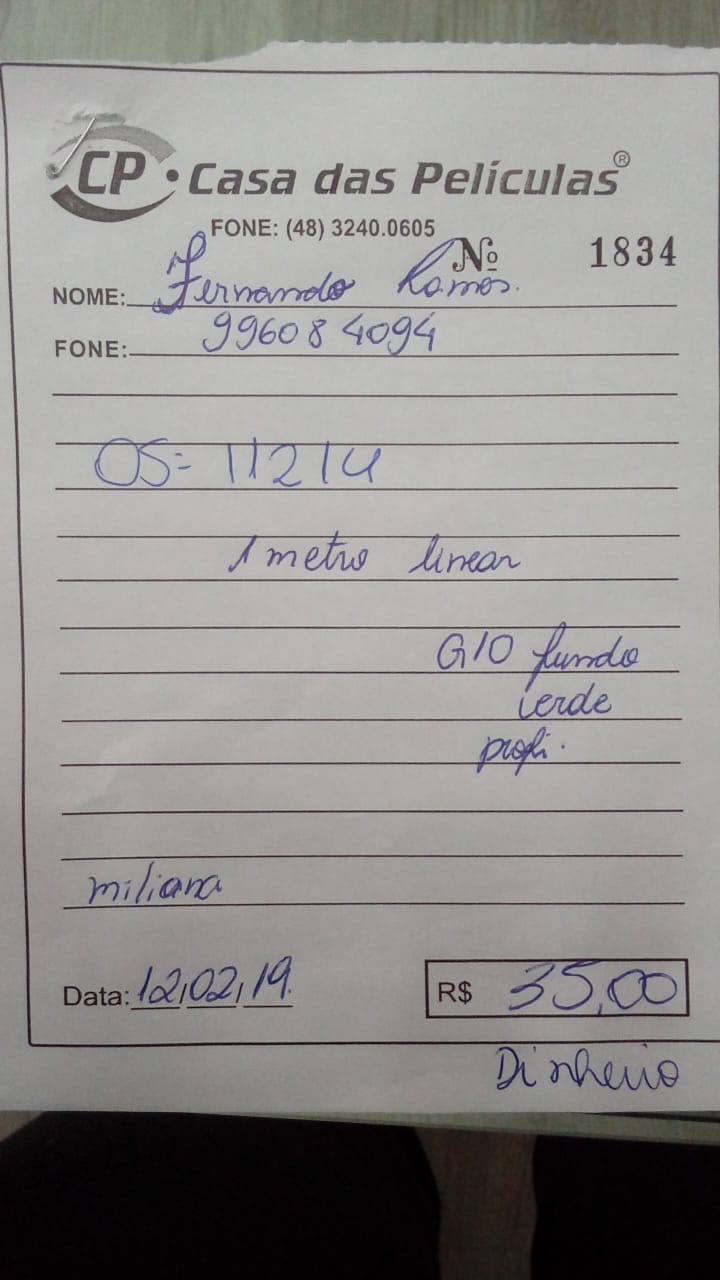 CP • Casa das Películas®
FONE: (48) 3240.0605
Nº 1834
NOME: Fernando Ramos.
FONE: 99608 4094
OS= 11214
1 metro linear
G10 fundo
verde
profi.
miliana
Data: 12,02,19. R$ 35,00
Dinheiro